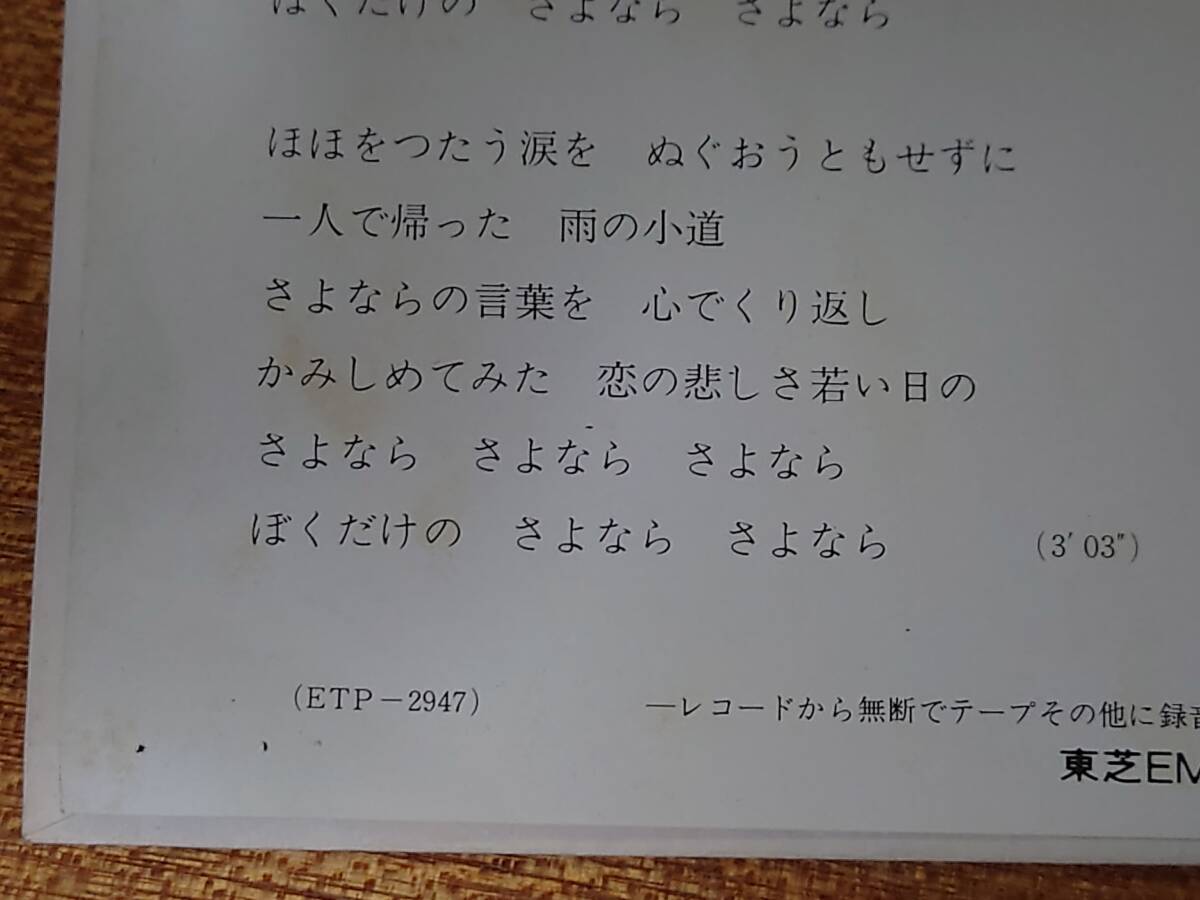 ぼくだけの　さよなら　さよなら
ほほをつたう涙を　ぬぐおうともせずに
一人で帰った　雨の小道
さよならの言葉を　心でくり返し
かみしめてみた　恋の悲しさ若い日の
さよなら　さよなら　さよなら
ぼくだけの　さよなら　さよなら　(3′03″)
(ETP－2947)　―レコードから無断でテープその他に録音
東芝EM